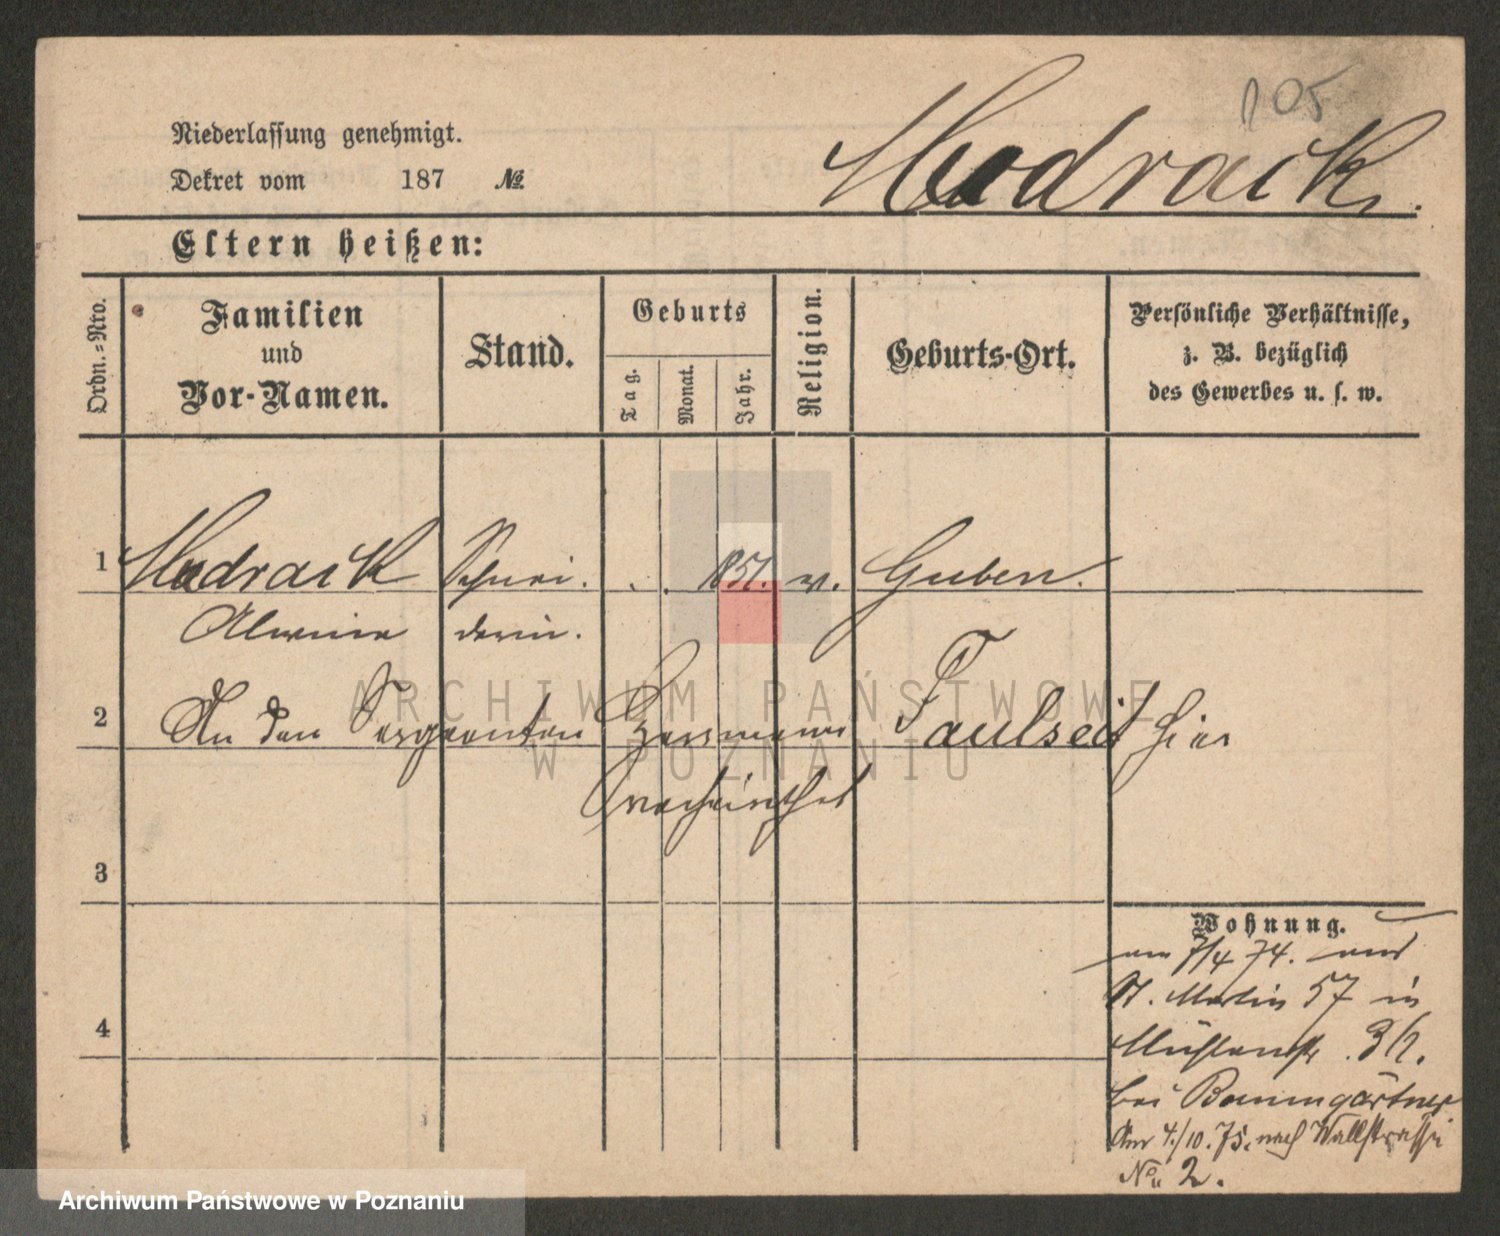 105
Niederlassung genehmigt.
Dekret vom 187 №
Modrack.
Eltern heißen:
Ordn.=Nro.
Familien und Vor-Namen.
Stand.
Geburts
Tag.
Monat.
Jahr.
Religion.
Geburts-Ort.
Persönliche Verhältnisse,
z. B. bezüglich
des Gewerbes u. s. w.
1 Modrack Schnei. . . 1851. ev. Guben.
Alwine derin.
2 An den Sergeanten Herrmann Taulseit hier
verheirathet
3
4
Wohnung.
am 7/4 74. aus
St. Martin 57 in
Mühlenstr.
bei Baumgärtner
Am 4./10. 75. nach Wallstrasse
No 2.
ARCHIWUM PAŃSTWOWE
W POZNANIU
Archiwum Państwowe w Poznaniu